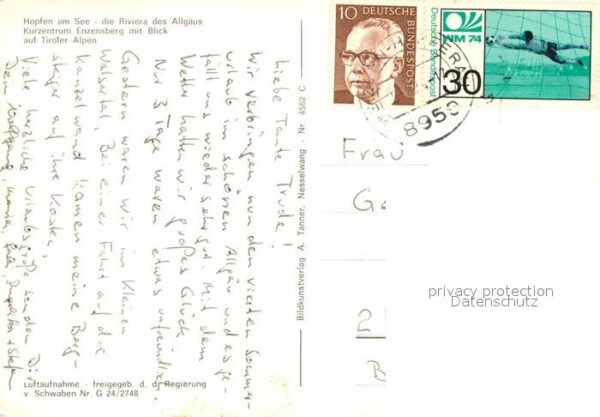 Hopfen am See - die Riviera des Allgäus
Kurzentrum Enzensberg mit Blick
auf Tiroler Alpen
Liebe Tante Trude!
Wir verbringen nun den vierten Sommer-
urlaub im schönen Allgäu und es ge-
fällt uns wieder sehr gut. Mit dem
Wetter hatten wir großes Glück
Nur 3 Tage waren etwas unfreundlich.
Gestern waren wir im Kleinen
Walsertal. Bei einer Fahrt auf die
Kanzelwand kamen meine Berg-
steiger auf ihre Kosten!
Viele herzliche Urlaubsgrüße senden Dir
Dein Wolfgang,
Luftaufnahme - freigegeb. d. d. Regierung
v. Schwaben Nr. G 24/2748
Bildkunstverlag A. Tanner, Nesselwang - Nr. 4562 C
10
DEUTSCHE BUNDESPOST
WM 74
Deutsche Bundespost
30
8959
Frau
G
2
B
privacy protection
Datenschutz